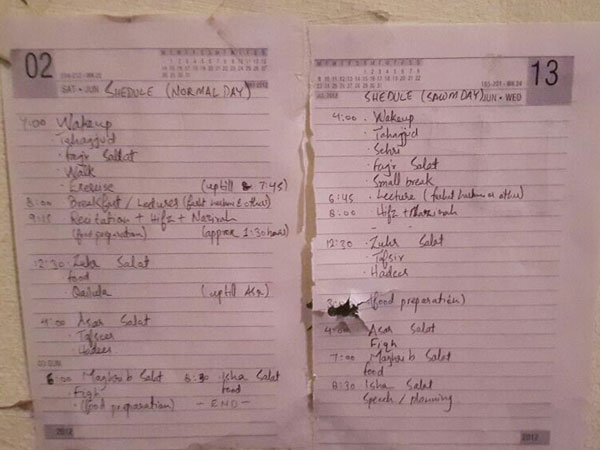 02
SAT • JUN
SHEDULE (NORMAL DAY)
2012
Wakeup
Tahajjud
• Fajr Salat
• Walk
• Exercise (uptill 7:45)
8:00 Breakfast / Lectures (& other)
9:15 Recitation + Hifz + Nazirah
(food preparation) (approx 1:30 hours)
12:30 • Zuhr Salat
• food
• Qailula (uptill Asr)
Asar Salat
• Tafseer
• Hadees
03 SUN
6:00 Maghrib Salat 8:30 • Isha Salat
• Fiqh food
• (food preparation) - END -
2012
13
JUN • WED
SHEDULE (SAWM DAY)
4:00 • Wakeup
• Tahajjud
• Sehri
• Fajr Salat
Small break
6:45 • Lecture (or other)
8:00 Hifz + Nazirah
12:30 • Zuhr Salat
• Tafsir
• Hadees
(food preparation)
Asar Salat
Fiqh
7:00 Maghrib Salat
food
8:30 Isha Salat
Speech / planning
2012